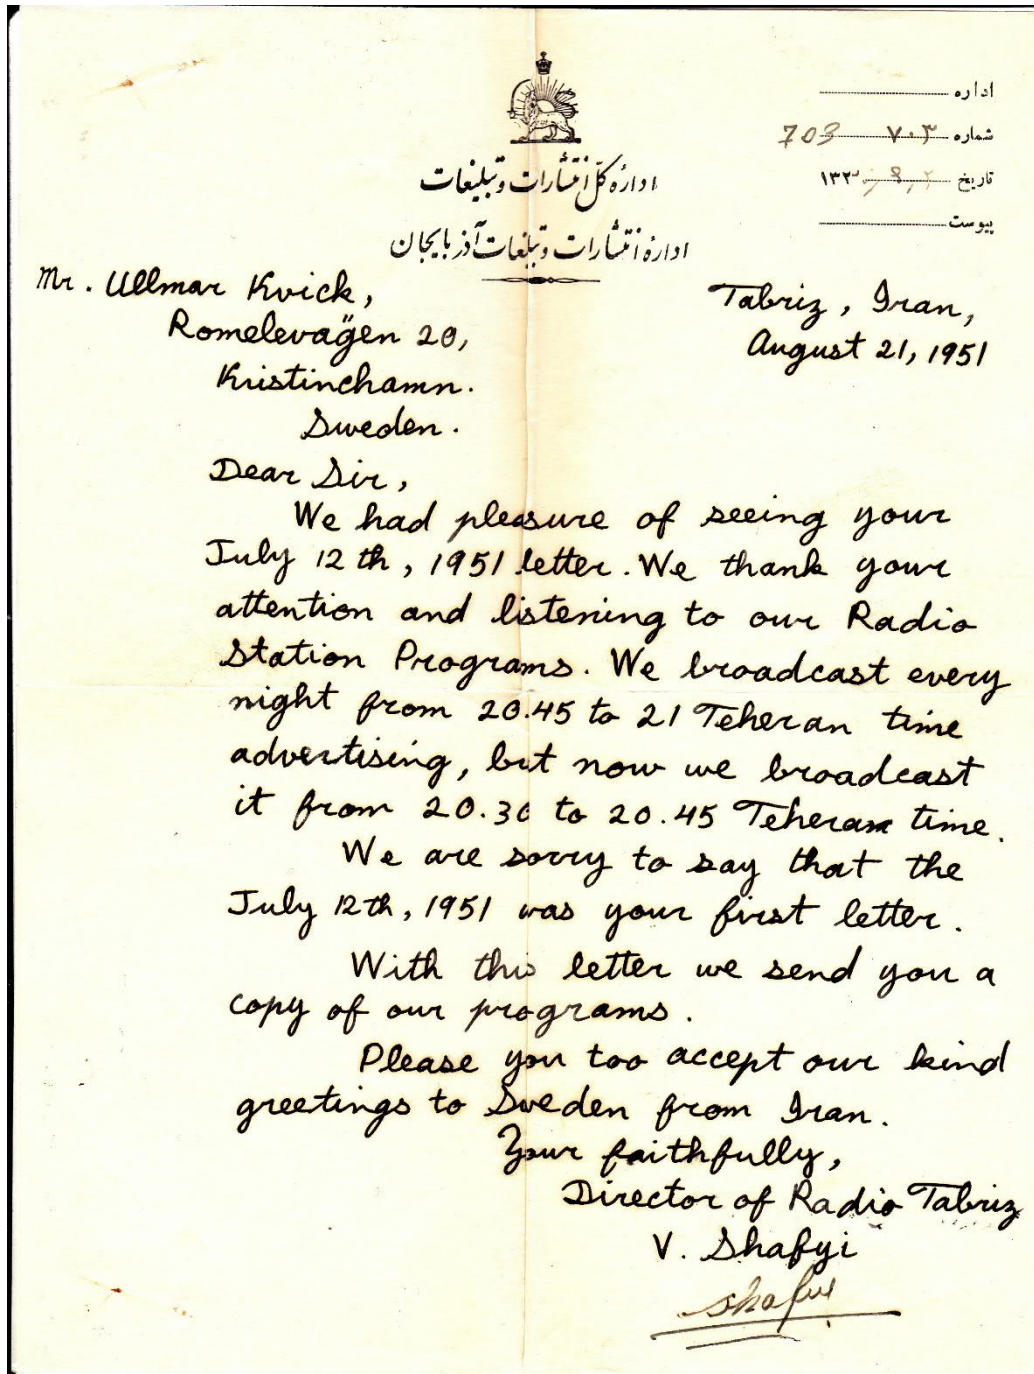 اداره
شماره ۷۰۳ 703
تاریخ
پیوست
ادارهٔ کل انتشارات و تبلیغات
ادارهٔ انتشارات و تبلیغات آذربایجان
Mr. Ullmar Kvick,
Romelevaÿgen 20,
Kristinchamn.
Sweden.
Tabriz, Iran,
August 21, 1951
Dear Sir,
We had pleasure of seeing your
July 12 th, 1951 letter. We thank your
attention and listening to our Radio
Station Programs. We broadcast every
night from 20.45 to 21 Teheran time
advertising, but now we broadcast
it from 20.30 to 20.45 Teheran time.
We are sorry to say that the
July 12th, 1951 was your first letter.
With this letter we send you a
copy of our programs.
Please you too accept our kind
greetings to Sweden from Iran.
Your faithfully,
Director of Radio Tabriz
V. Shafyi